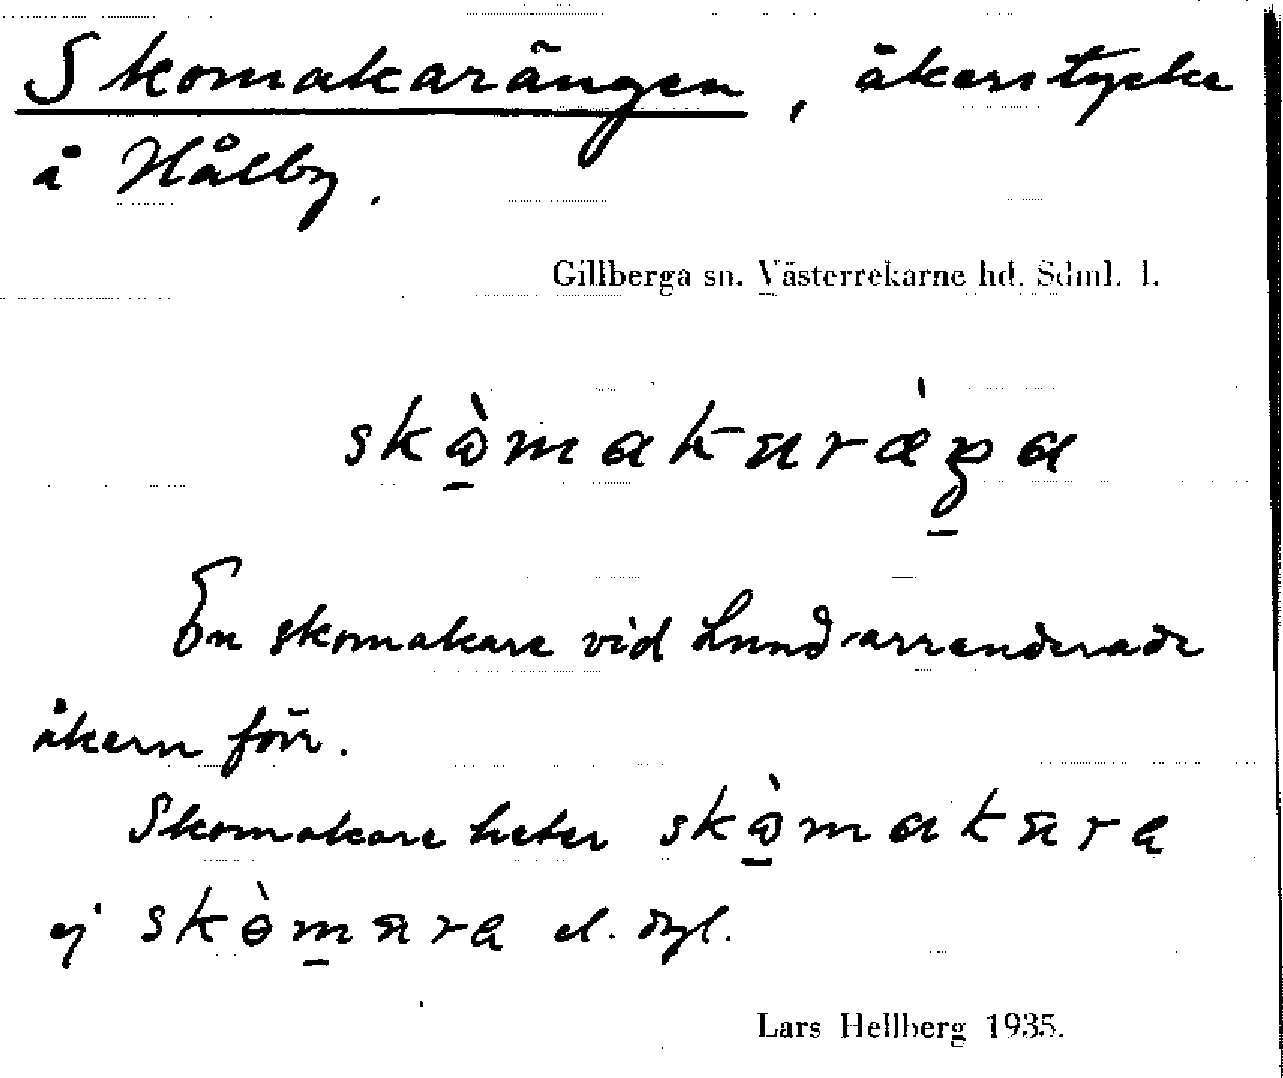 Skomakarängen, åkerstycke
å Hålby.
Gillberga sn. Västerrekarne hd. Sdml. l.
En skomakare vid Lund arrenderade
åkern förr.
Skomakare heter
ej el. dyl.
Lars Hellberg 1935.